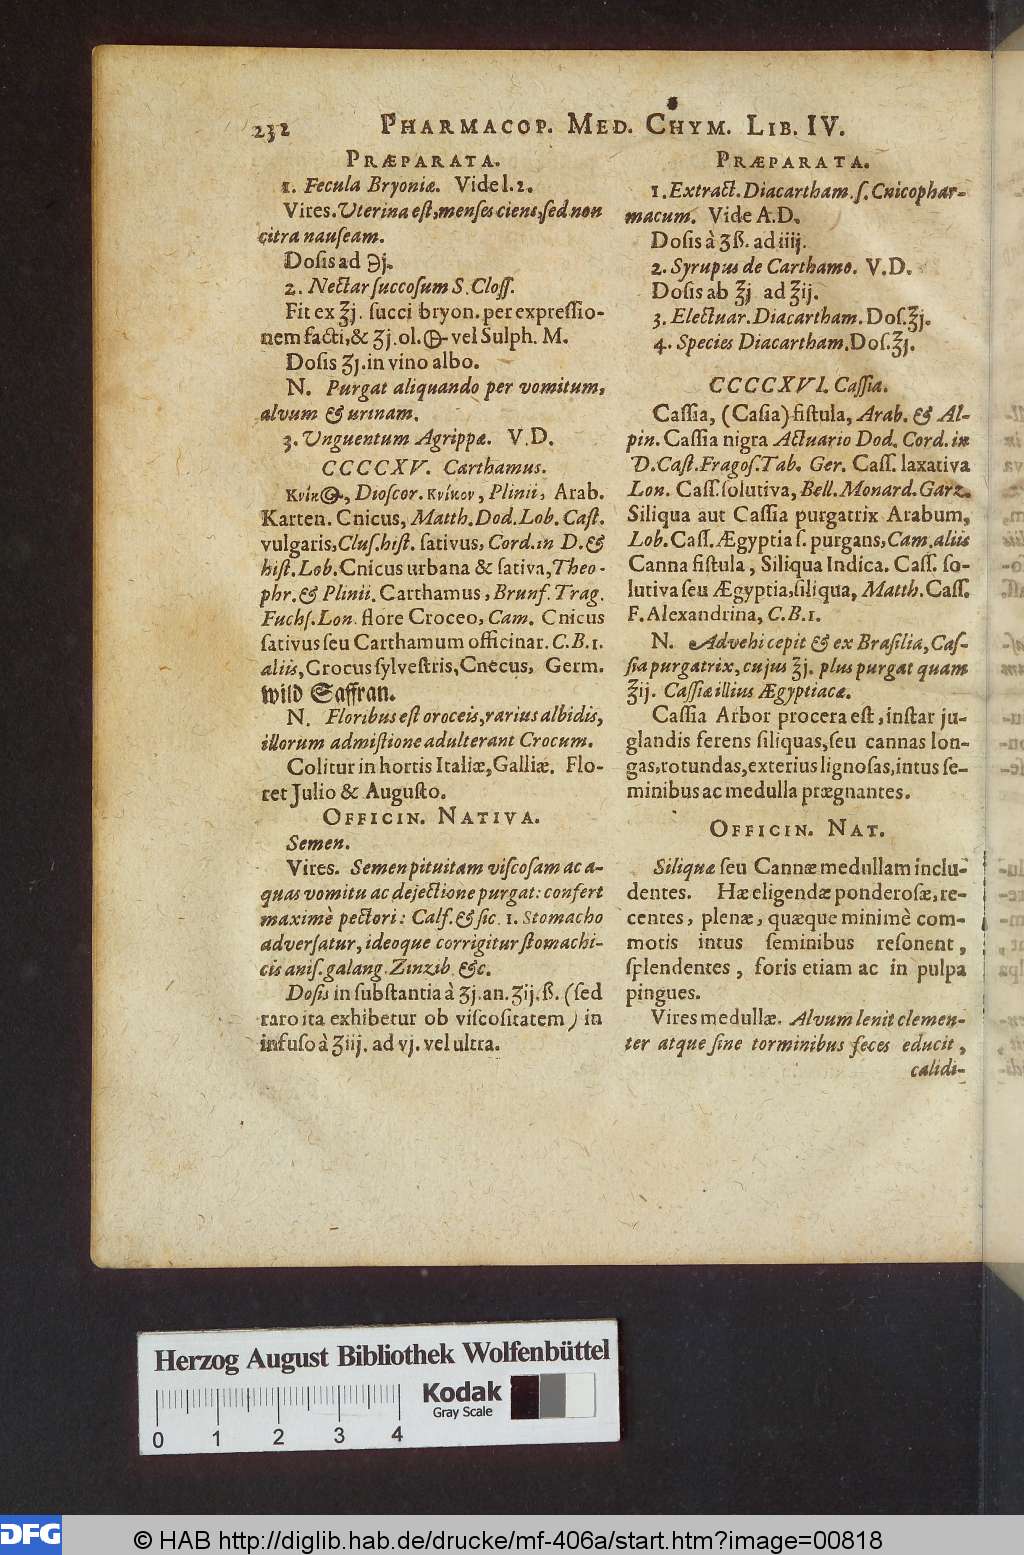 232 PHARMACOP. MED. CHYM. LIB. IV.
PRÆPARATA.
1. Fecula Bryoniæ. Vide l. 2.
Vires. Uterina est, menses ciens, sed non
citra nauseam.
Dosis ad ℈j.
2. Nectar succosum S. Closs.
Fit ex ℥j. succi bryon. per expressio-
nem facti, & ʒj. ol. 🜖 vel Sulph. M.
Dosis ʒj. in vino albo.
N. Purgat aliquando per vomitum,
alvum & urinam.
3. Unguentum Agrippæ. V. D.
CCCCXV. Carthamus.
Κνίκος, Dioscor. κνίκον, Plinii, Arab.
Karten. Cnicus, Matth. Dod. Lob. Cast.
vulgaris, Clus. hist. sativus, Cord. in D. &
hist. Lob. Cnicus urbana & sativa, Theo-
phr. & Plinii. Carthamus, Brunf. Trag.
Fuchs. Lon. flore Croceo, Cam. Cnicus
sativus seu Carthamum officinar. C. B. 1.
aliis, Crocus sylvestris, Cnecus, Germ.
wild Saffran.
N. Floribus est oroceis, rarius albidis,
illorum admistione adulterant Crocum.
Colitur in hortis Italiæ, Galliæ. Flo-
ret Julio & Augusto.
OFFICIN. NATIVA.
Semen.
Vires. Semen pituitam viscosam ac a-
quas vomitu ac dejectione purgat: confert
maximè pectori: Calf. & sic. 1. Stomacho
adversatur, ideoque corrigitur stomachi-
cis anis. galang. Zinzib. &c.
Dosis in substantia à ʒj. an. ʒij. ß. (sed
raro ita exhibetur ob viscositatem) in
infuso à ʒiij. ad vj. vel ultra.
PRÆPARATA.
1. Extract. Diacartham. s. Cnicophar-
macum. Vide A. D.
Dosis à ʒß. ad iiij.
2. Syrupus de Carthamo. V. D.
Dosis ab ℥j ad ℥ij.
3. Electuar. Diacartham. Dos. ℥j.
4. Species Diacartham. Dos. ℥j.
CCCCXVI. Cassia.
Cassia, (Casia) fistula, Arab. & Al-
pin. Cassia nigra Actuario Dod. Cord. in
D. Cast. Fragos. Tab. Ger. Cass. laxativa
Lon. Cass. solutiva, Bell. Monard. Garz.
Siliqua aut Cassia purgatrix Arabum,
Lob. Cass. Ægyptia s. purgans, Cam. aliis
Canna fistula, Siliqua Indica. Cass. so-
lutiva seu Ægyptia, siliqua, Matth. Cass.
F. Alexandrina, C. B. 1.
N. Advehi cepit & ex Brasilia, Cas-
sia purgatrix, cujus ℥j. plus purgat quam
℥ij. Cassiæ illius Ægyptiacæ.
Cassia Arbor procera est, instar ju-
glandis ferens siliquas, seu cannas lon-
gas, rotundas, exterius lignosas, intus se-
minibus ac medulla prægnantes.
OFFICIN. NAT.
Siliquæ seu Cannæ medullam inclu-
dentes. Hæ eligendæ ponderosæ, re-
centes, plenæ, quæque minimè com-
motis intus seminibus resonent,
splendentes, foris etiam ac in pulpa
pingues.
Vires medullæ. Alvum lenit clemen-
ter atque sine torminibus feces educit,
calidi-
Herzog August Bibliothek Wolfenbüttel
Kodak
Gray Scale
0 1 2 3 4
DFG
© HAB http://diglib.hab.de/drucke/mf-406a/start.htm?image=00818